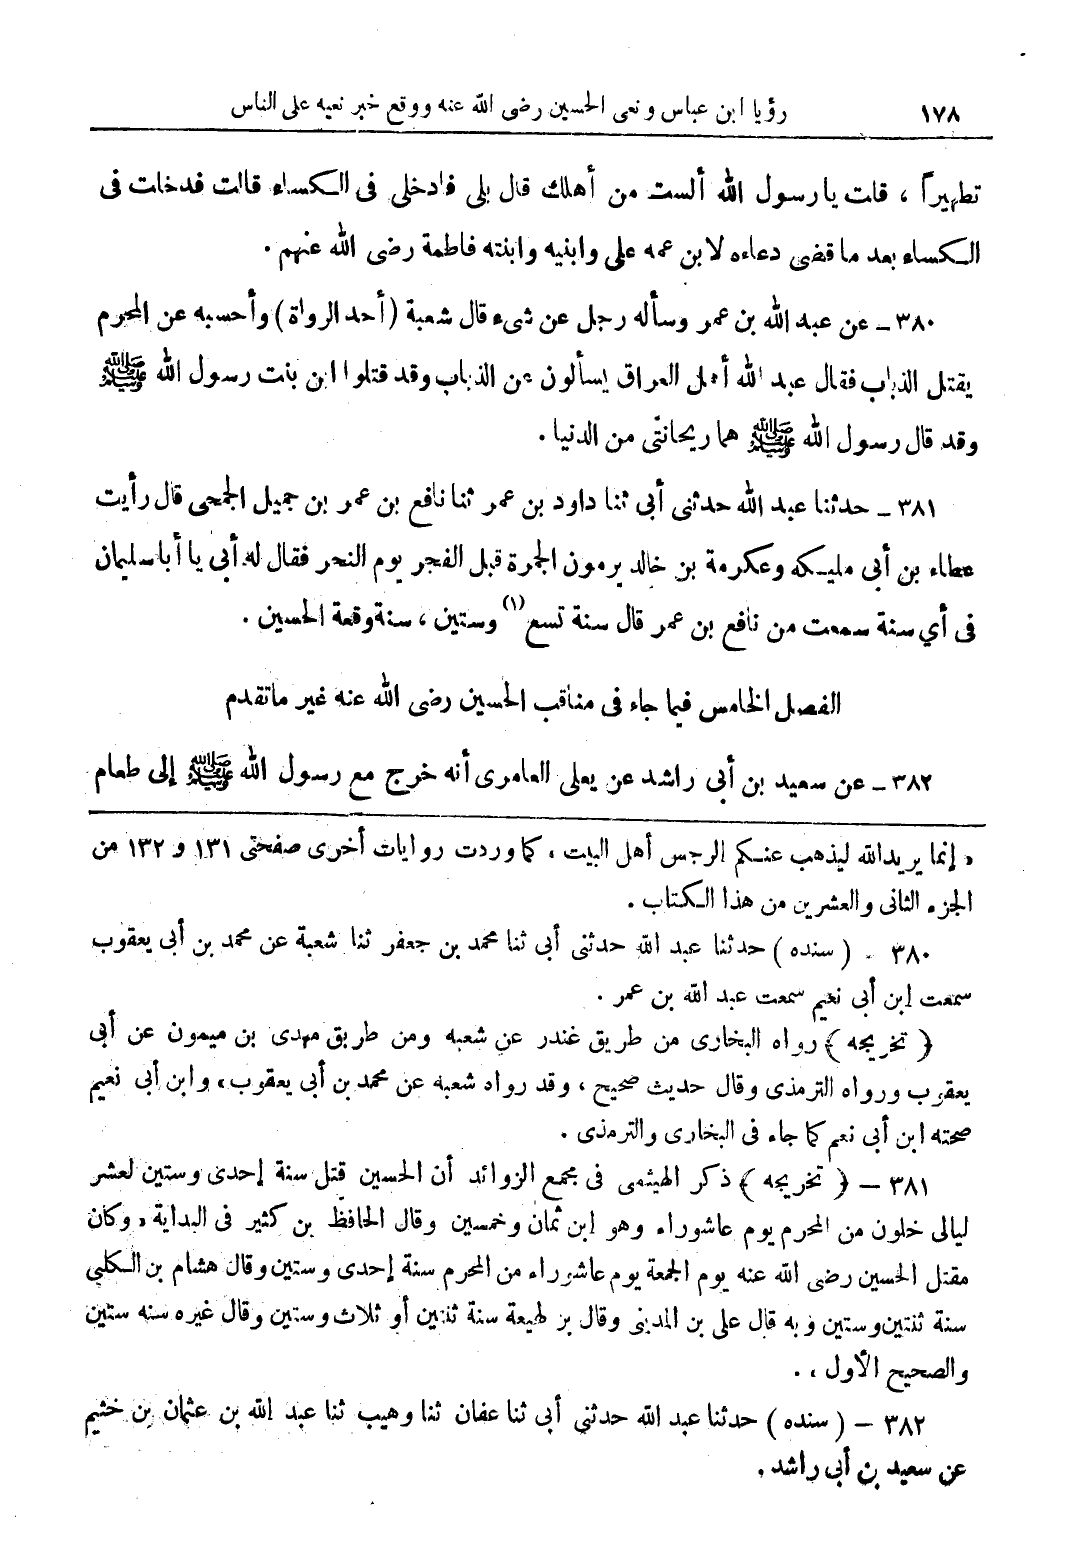 ١٧٨ رؤيا ابن عباس ونعى الحسين رضى الله عنه ووقع خبر نعيه على الناس
تطهيراً ، قلت يارسول الله ألست من أهلك قال بلى فادخلى فى الكساء قالت فدخلت فى
الكساء بعد ما قضى دعاءه لابن عمه على وابنيه وابنته فاطمة رضى الله عنهم .
٣٨٠ ـ عن عبد الله بن عمر وسأله رجل عن شىء قال شعبة (أحد الرواة) وأحسبه عن المحرم
يقتل الذباب فقال عبد الله أهل العراق يسألون عن الذباب وقد قتلوا ابن بنت رسول الله ﷺ
وقد قال رسول الله ﷺ هما ريحانتى من الدنيا .
٣٨١ ـ حدثنا عبد الله حدثنى أبى ثنا داود بن عمر ثنا نافع بن عمر بن جميل الجمحى قال رأيت
عطاء بن أبى مليكه وعكرمة بن خالد يرمون الجمرة قبل الفجر يوم النحر فقال له أبى يا أبا سليمان
فى أي سنة سمعت من نافع بن عمر قال سنة تسع (١) وستين ، سنة وقعة الحسين .
الفصل الخامس فيما جاء فى مناقب الحسين رضى الله عنه غير ماتقدم
٣٨٢ ـ عن سعيد بن أبى راشد عن يعلى العامرى أنه خرج مع رسول الله ﷺ إلى طعام
« إنما يريد الله ليذهب عنكم الرجس أهل البيت ، كما وردت روايات أخرى صفحتى ١٣١ و ١٣٢ من
الجزء الثانى والعشرين من هذا الكتاب .
٣٨٠ ـ ( سنده ) حدثنا عبد الله حدثنى أبى ثنا محمد بن جعفر ثنا شعبة عن محمد بن أبى يعقوب
سمعت ابن أبى نعيم سمعت عبد الله بن عمر .
﴿ تخريجه ﴾ رواه البخارى من طريق غندر عن شعبه ومن طريق مهدى بن ميمون عن أبى
يعقوب ورواه الترمذى وقال حديث صحيح ، وقد رواه شعبه عن محمد بن أبى يعقوب ، وابن أبى نعيم
صحته ابن أبى نعم كما جاء فى البخارى والترمذى .
٣٨١ ـ ﴿ تخريجه ﴾ ذكر الهيثمى فى مجمع الزوائد أن الحسين قتل سنة إحدى وستين لعشر
ليالى خلون من المحرم يوم عاشوراء وهو ابن ثمان وخمسين وقال الحافظ بن كثير فى البداية « وكان
مقتل الحسين رضى الله عنه يوم الجمعة يوم عاشوراء من المحرم سنة إحدى وستين وقال هشام بن الكلبي
سنة ثنتين وستين وبه قال على بن المدينى وقال بن لهيعة سنة ثنتين أو ثلاث وستين وقال غيره سنه ستين
والصحيح الأول » .
٣٨٢ ـ ( سنده ) حدثنا عبد الله حدثنى أبى ثنا عفان ثنا وهيب ثنا عبد الله بن عثمان بن خثيم
عن سعيد بن أبى راشد .